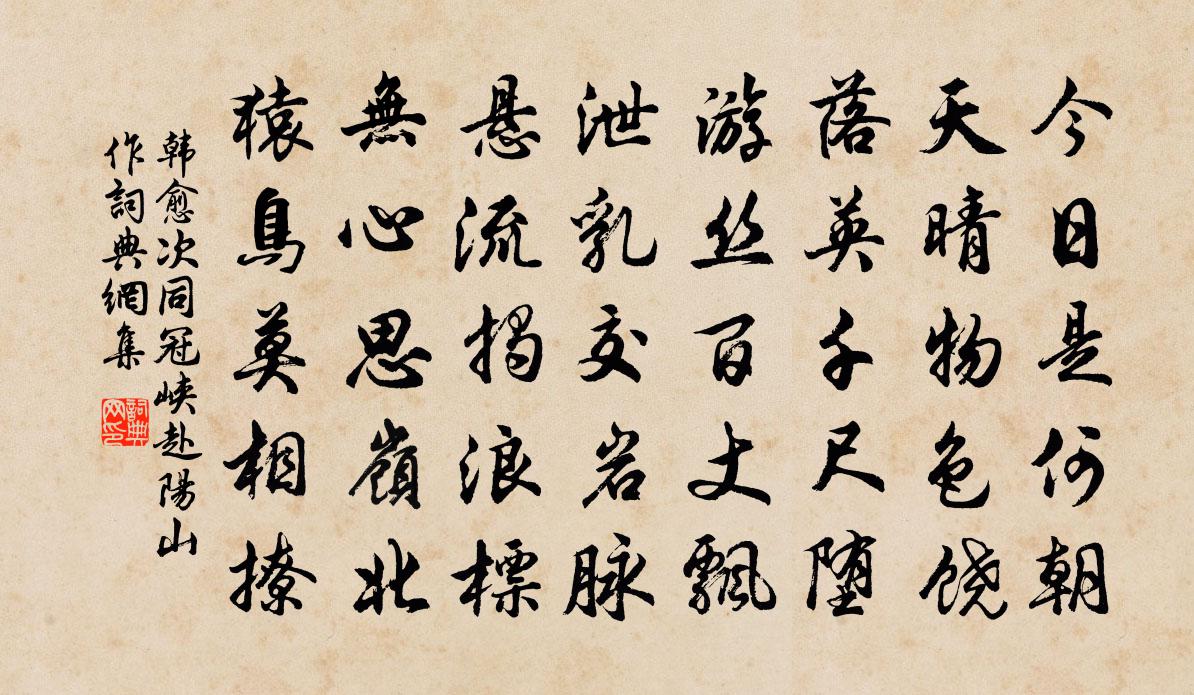 今日是何朝
天晴物色饶
落英千尺堕
游丝百丈飘
泄乳交岩脉
悬流揭浪標
無心思嶺北
猿鳥莫相撩
韩愈次同冠峡赴陽山
作詞典網集
詞典网印